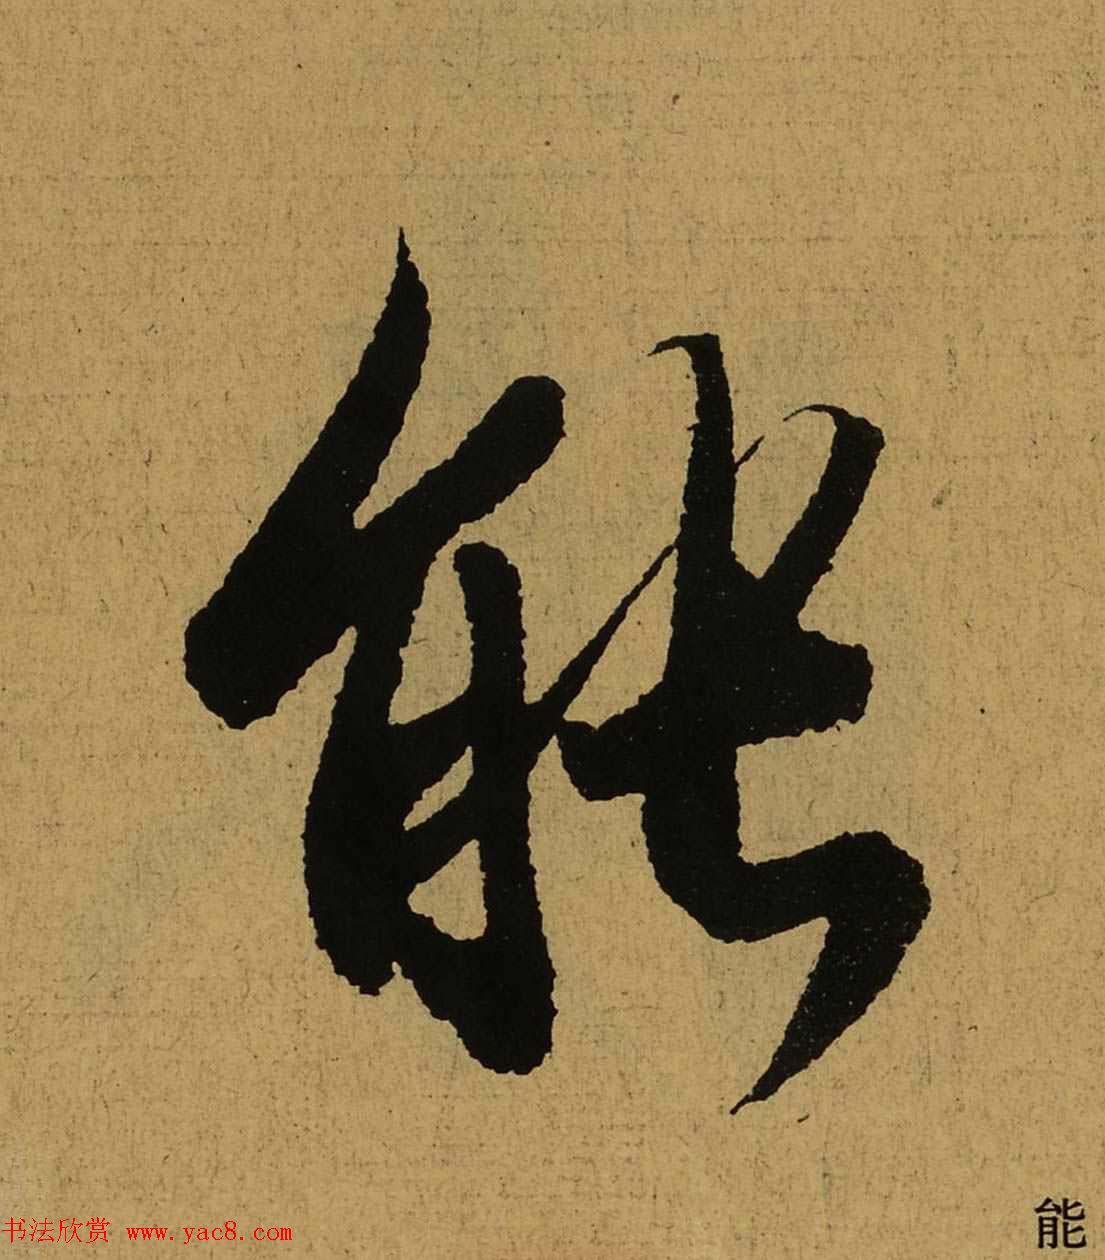 能
能
书法欣赏 www.yac8.com